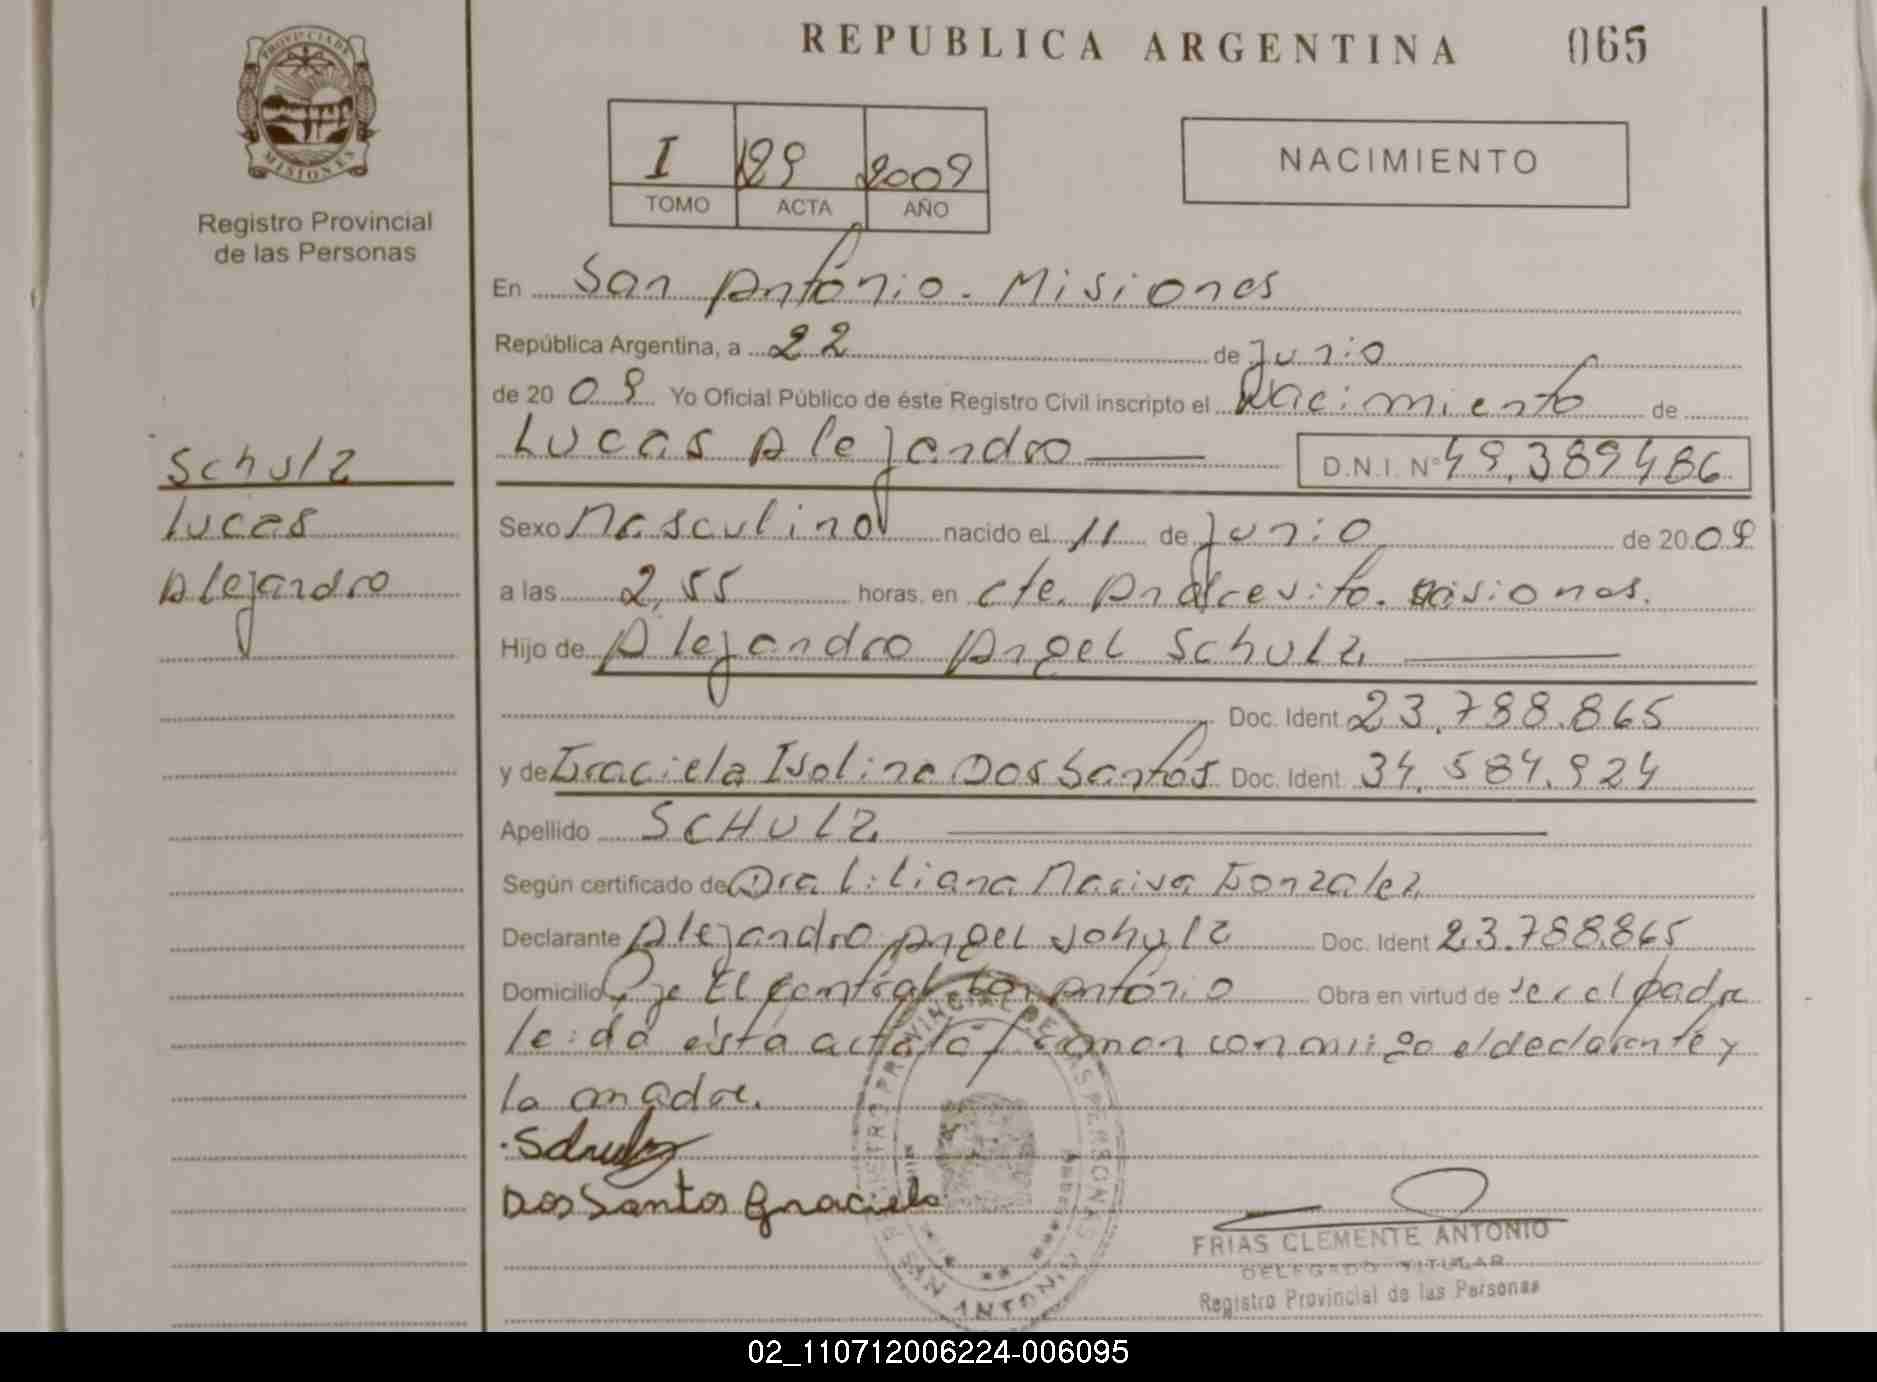 REPUBLICA ARGENTINA 065
PROVINCIA DE MISIONES
Registro Provincial
de las Personas
I 129 2009
TOMO ACTA AÑO
NACIMIENTO
En San Antonio - Misiones
República Argentina, a 22 de Junio
de 2009 Yo Oficial Público de éste Registro Civil inscripto el Nacimiento de
Lucas Alejandro D.N.I. Nº 49.389486
Schulz
Lucas
Alejandro
Sexo Masculino nacido el 11 de Junio de 2009
a las 2,55 horas, en Cte. Andresito. Misiones.
Hijo de Alejandro Angel Schulz
Doc. Ident 23.788.865
y de Graciela Isolina Dos Santos Doc. Ident. 34.584.924
Apellido SCHULZ
Según certificado de Dra Liliana Marisa Gonzalez
Declarante Alejandro Angel Schulz Doc. Ident 23.788.865
Domicilio El Central San Antonio Obra en virtud de ser el padre
leida esta acta la firman conmigo el declarante y
la madre.
Schulz
Dos Santos Graciela
REGISTRO PROVINCIAL DE LAS PERSONAS
SAN ANTONIO
FRIAS CLEMENTE ANTONIO
DELEGADO TITULAR
Registro Provincial de las Personas
02_110712006224-006095